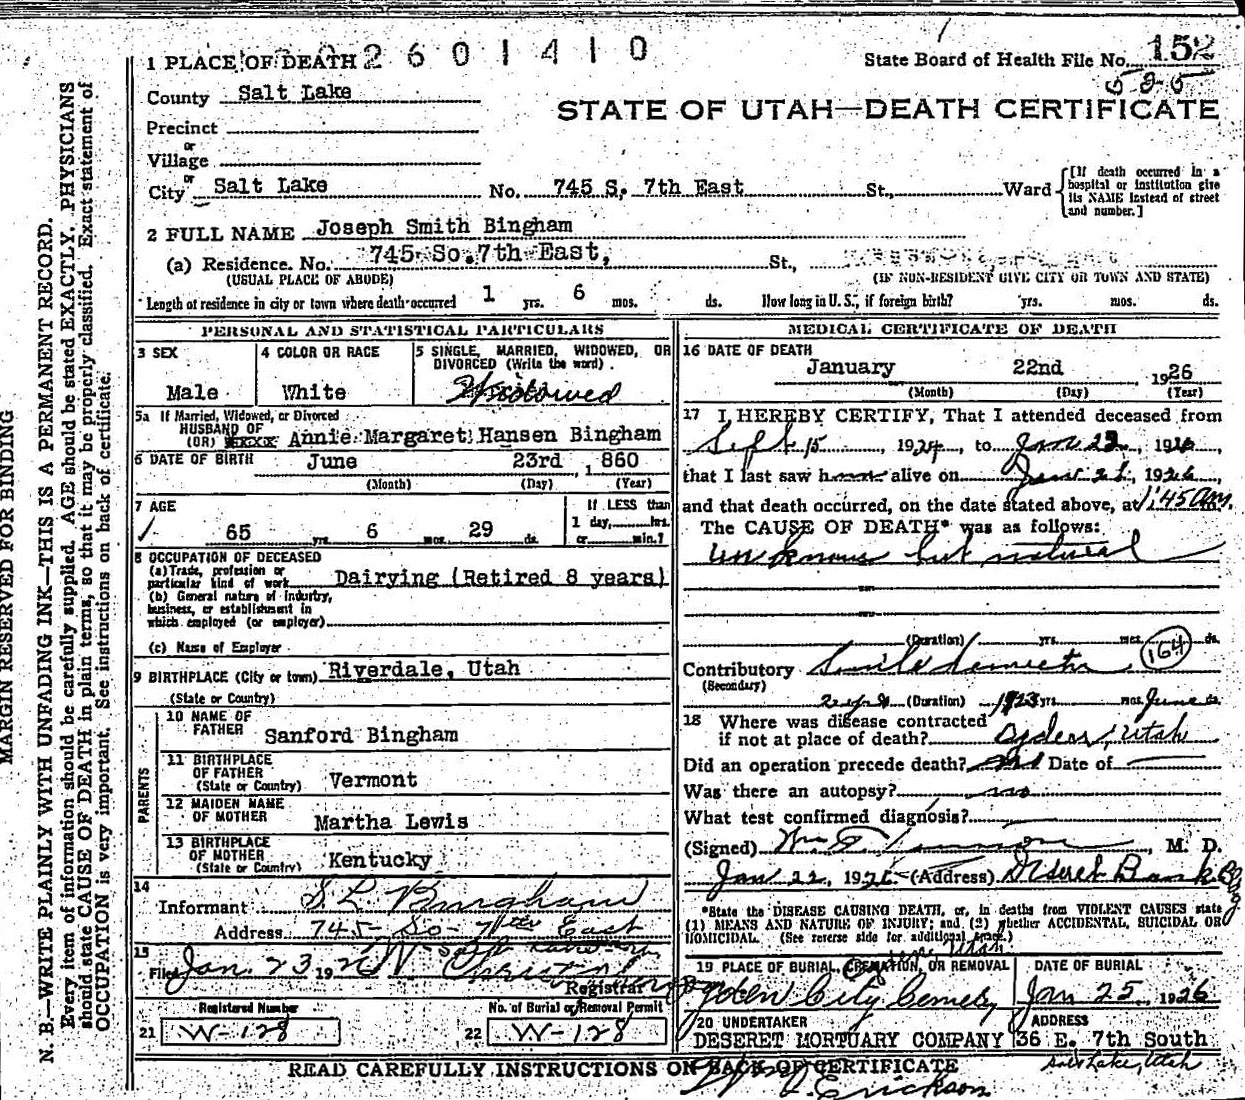 MARGIN RESERVED FOR BINDING
N. B.—WRITE PLAINLY WITH UNFADING INK—THIS IS A PERMANENT RECORD.
Every item of information should be carefully supplied. AGE should be stated EXACTLY. PHYSICIANS
should state CAUSE OF DEATH in plain terms, so that it may be properly classified. Exact statement of
OCCUPATION is very important. See instructions on back of certificate.
1 PLACE OF DEATH 2601410
State Board of Health File No. 152
525
County Salt Lake
STATE OF UTAH—DEATH CERTIFICATE
Precinct
or
Village
or
City Salt Lake No. 745 S. 7th East St., Ward [If death occurred in a hospital or institution give its NAME instead of street and number.]
2 FULL NAME Joseph Smith Bingham
(a) Residence. No. 745 So. 7th East, St.,
(USUAL PLACE OF ABODE) (IF NON-RESIDENT GIVE CITY OR TOWN AND STATE)
Length of residence in city or town where death occurred 1 yrs. 6 mos. ds. How long in U. S., if foreign birth? yrs. mos. ds.
PERSONAL AND STATISTICAL PARTICULARS
3 SEX
Male
4 COLOR OR RACE
White
5 SINGLE, MARRIED, WIDOWED, OR DIVORCED (Write the word)
Widowed
5a If Married, Widowed, or Divorced
HUSBAND OF
(OR) Annie Margaret Hansen Bingham
6 DATE OF BIRTH June 23rd 1860
(Month) (Day) (Year)
7 AGE
65 yrs. 6 mos. 29 ds.
If LESS than
1 day, hrs.
or min.?
8 OCCUPATION OF DECEASED
(a) Trade, profession or
particular kind of work Dairying (Retired 8 years)
(b) General nature of industry,
business, or establishment in
which employed (or employer)
(c) Name of Employer
9 BIRTHPLACE (City or town) Riverdale, Utah
(State or Country)
PARENTS
10 NAME OF
FATHER Sanford Bingham
11 BIRTHPLACE
OF FATHER
(State or Country) Vermont
12 MAIDEN NAME
OF MOTHER Martha Lewis
13 BIRTHPLACE
OF MOTHER
(State or Country) Kentucky
14
Informant S L Bingham
Address 745 So 7th East
15
Filed Jan. 23 1926
Registrar
Registered Number
21 W-128
No. of Burial or Removal Permit
22 W-128
MEDICAL CERTIFICATE OF DEATH
16 DATE OF DEATH
January 22nd 1926
(Month) (Day) (Year)
17 I HEREBY CERTIFY, That I attended deceased from
Sept 15, 1924, to Jan 22, 1926,
that I last saw h alive on Jan 21, 1926,
and that death occurred, on the date stated above, at 1:45 am.
The CAUSE OF DEATH* was as follows:
unknown but natural
(Duration) yrs. mos. ds.
Contributory 164
(Secondary)
(Duration) 1923 yrs. mos. June ds.
18 Where was disease contracted
if not at place of death? Ogden, Utah
Did an operation precede death? Date of
Was there an autopsy? no
What test confirmed diagnosis?
(Signed) , M. D.
Jan 22, 1926 (Address) Deseret Bank Bldg
*State the DISEASE CAUSING DEATH, or, in deaths from VIOLENT CAUSES state
(1) MEANS AND NATURE OF INJURY; and (2) whether ACCIDENTAL, SUICIDAL OR
HOMICIDAL. (See reverse side for additional space.)
19 PLACE OF BURIAL, CREMATION, OR REMOVAL
Ogden City Cemetery
DATE OF BURIAL
Jan 25, 1926
20 UNDERTAKER
DESERET MORTUARY COMPANY
ADDRESS
36 E. 7th South
Salt Lake, Utah
READ CAREFULLY INSTRUCTIONS ON BACK OF CERTIFICATE
Erickson